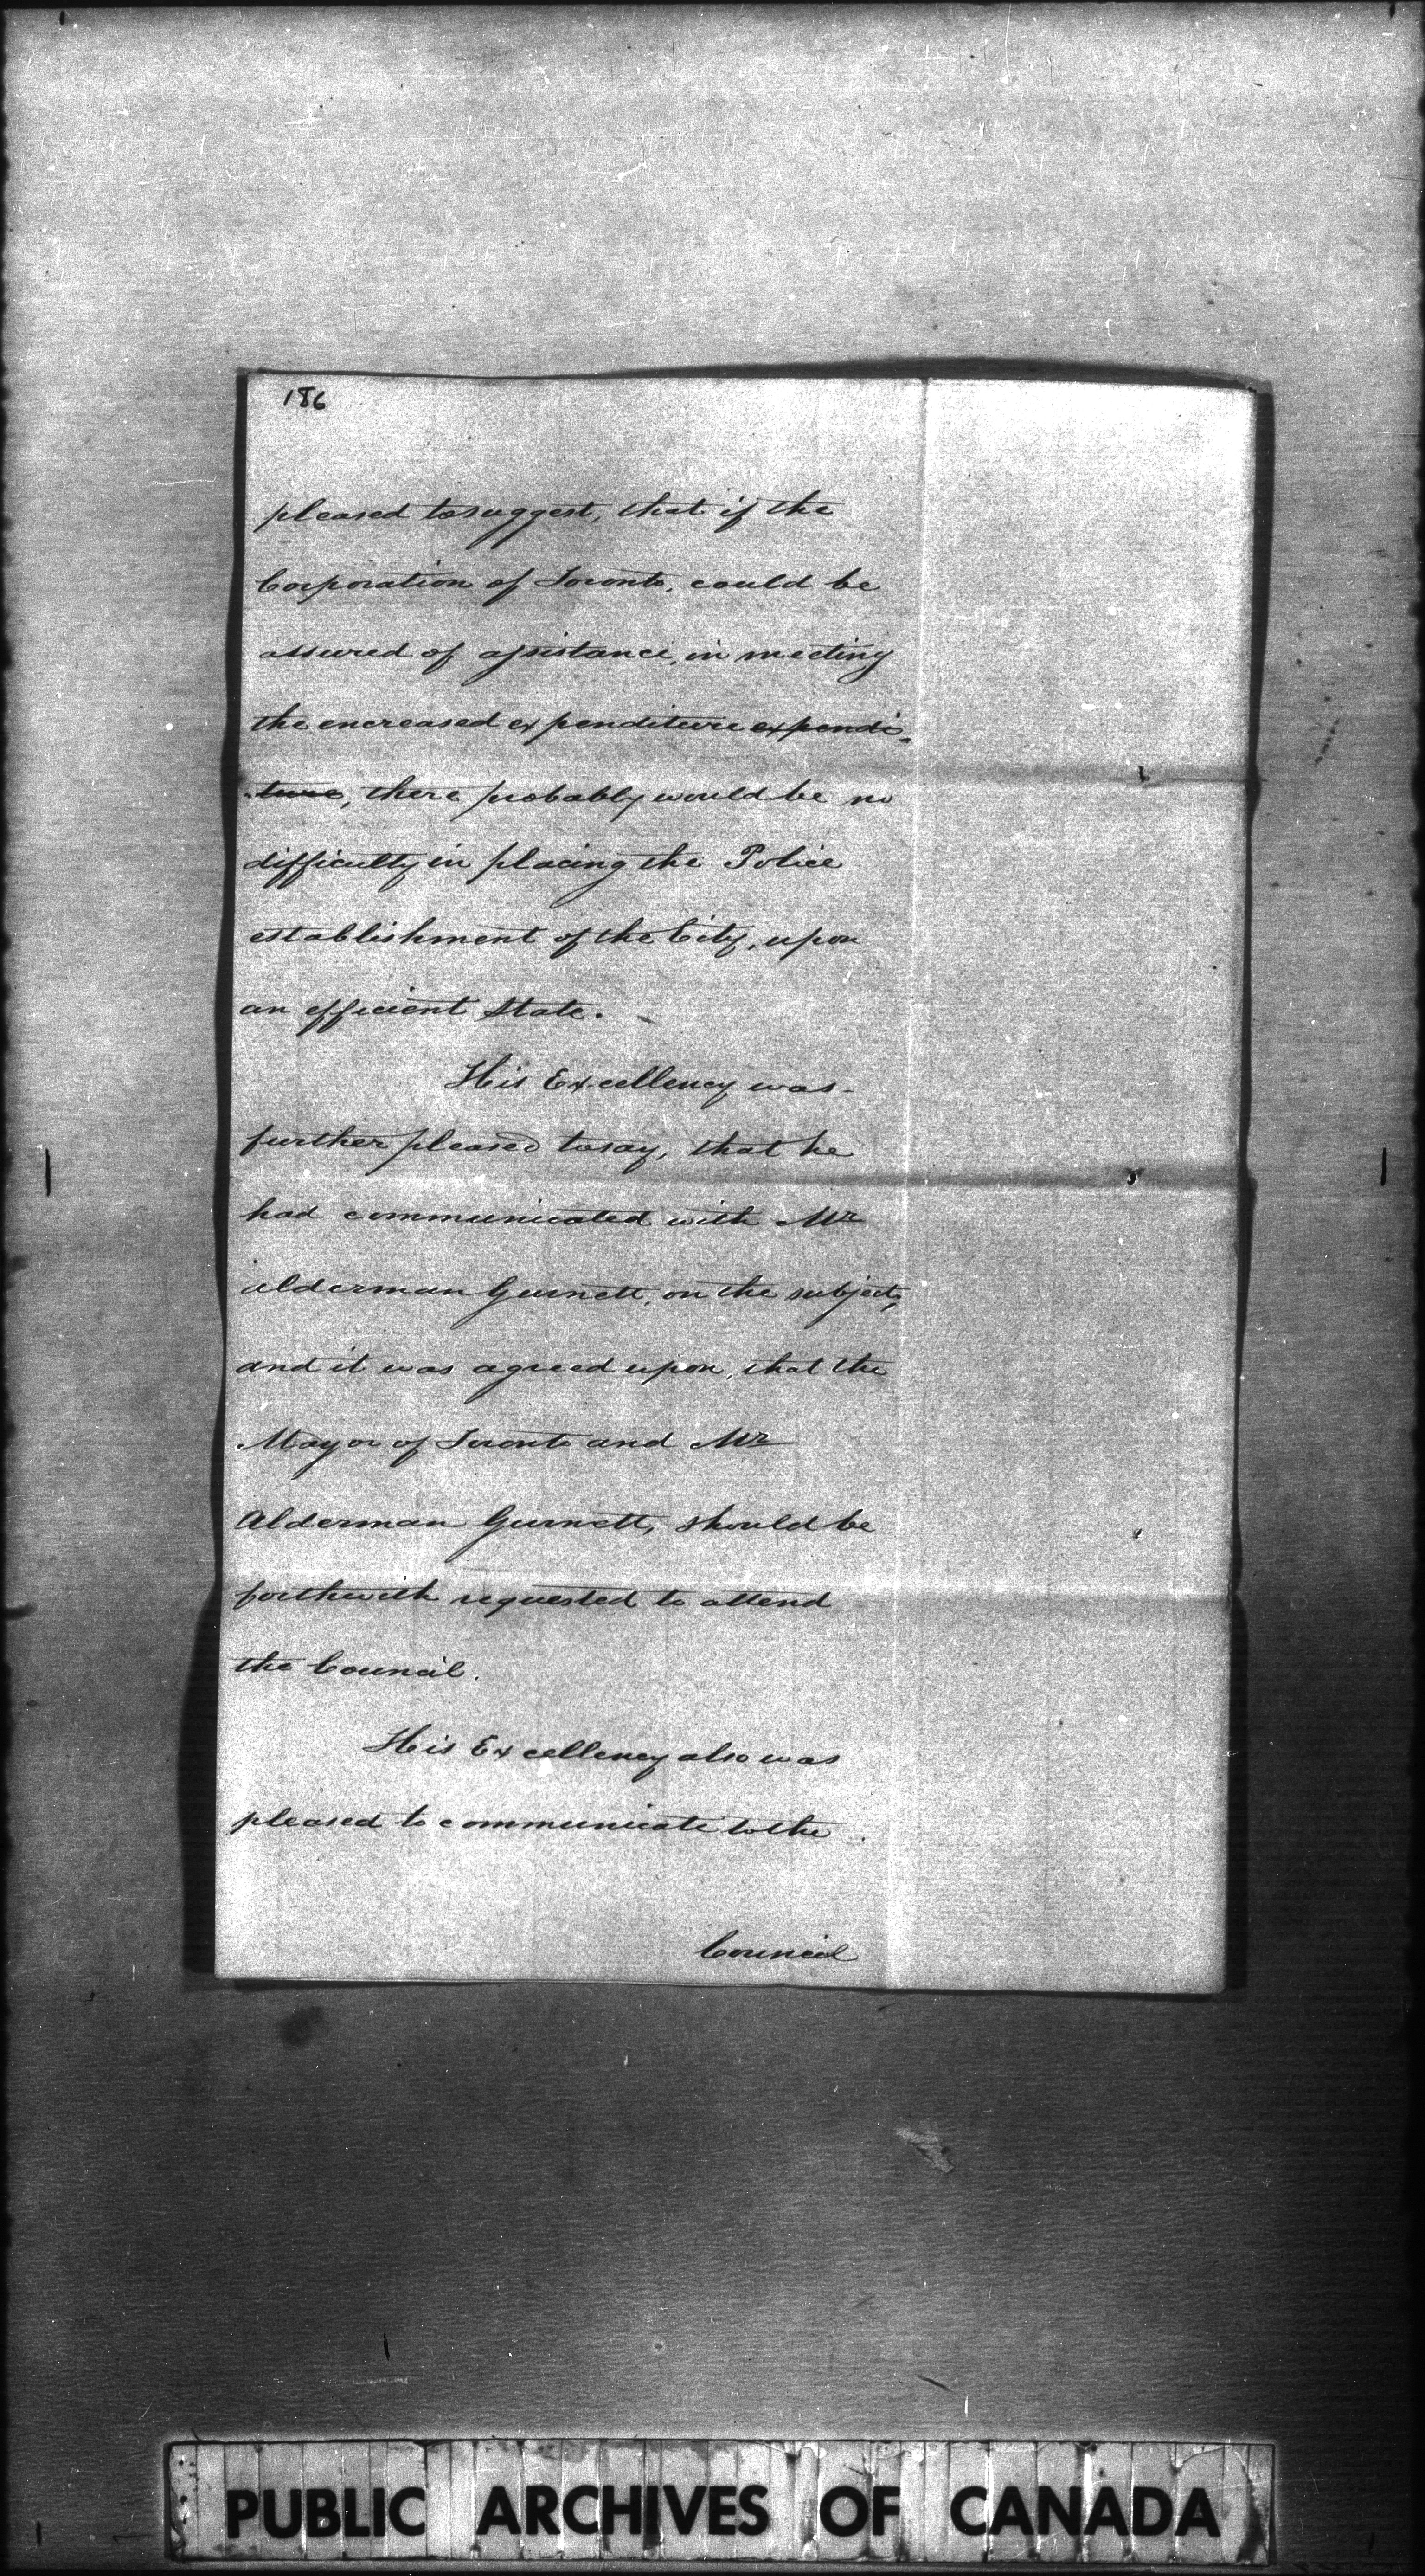 186
pleased to suggest, that if the
Corporation of Toronto, could be
assured of assistance, in meeting
the encreased expenditure expendi-
-ture, there probably would be no
difficulty in placing the Police
establishment of the City, upon
an efficient State.
His Excellency was
further pleased to say, that he
had communicated with Mr
Alderman Gurnett, on the subject,
and it was agreed upon, that the
Mayor of Toronto and Mr
Alderman Gurnett, should be
forthwith requested to attend
the Council.
His Excellency also was
pleased to communicate to the
Council
PUBLIC ARCHIVES OF CANADA